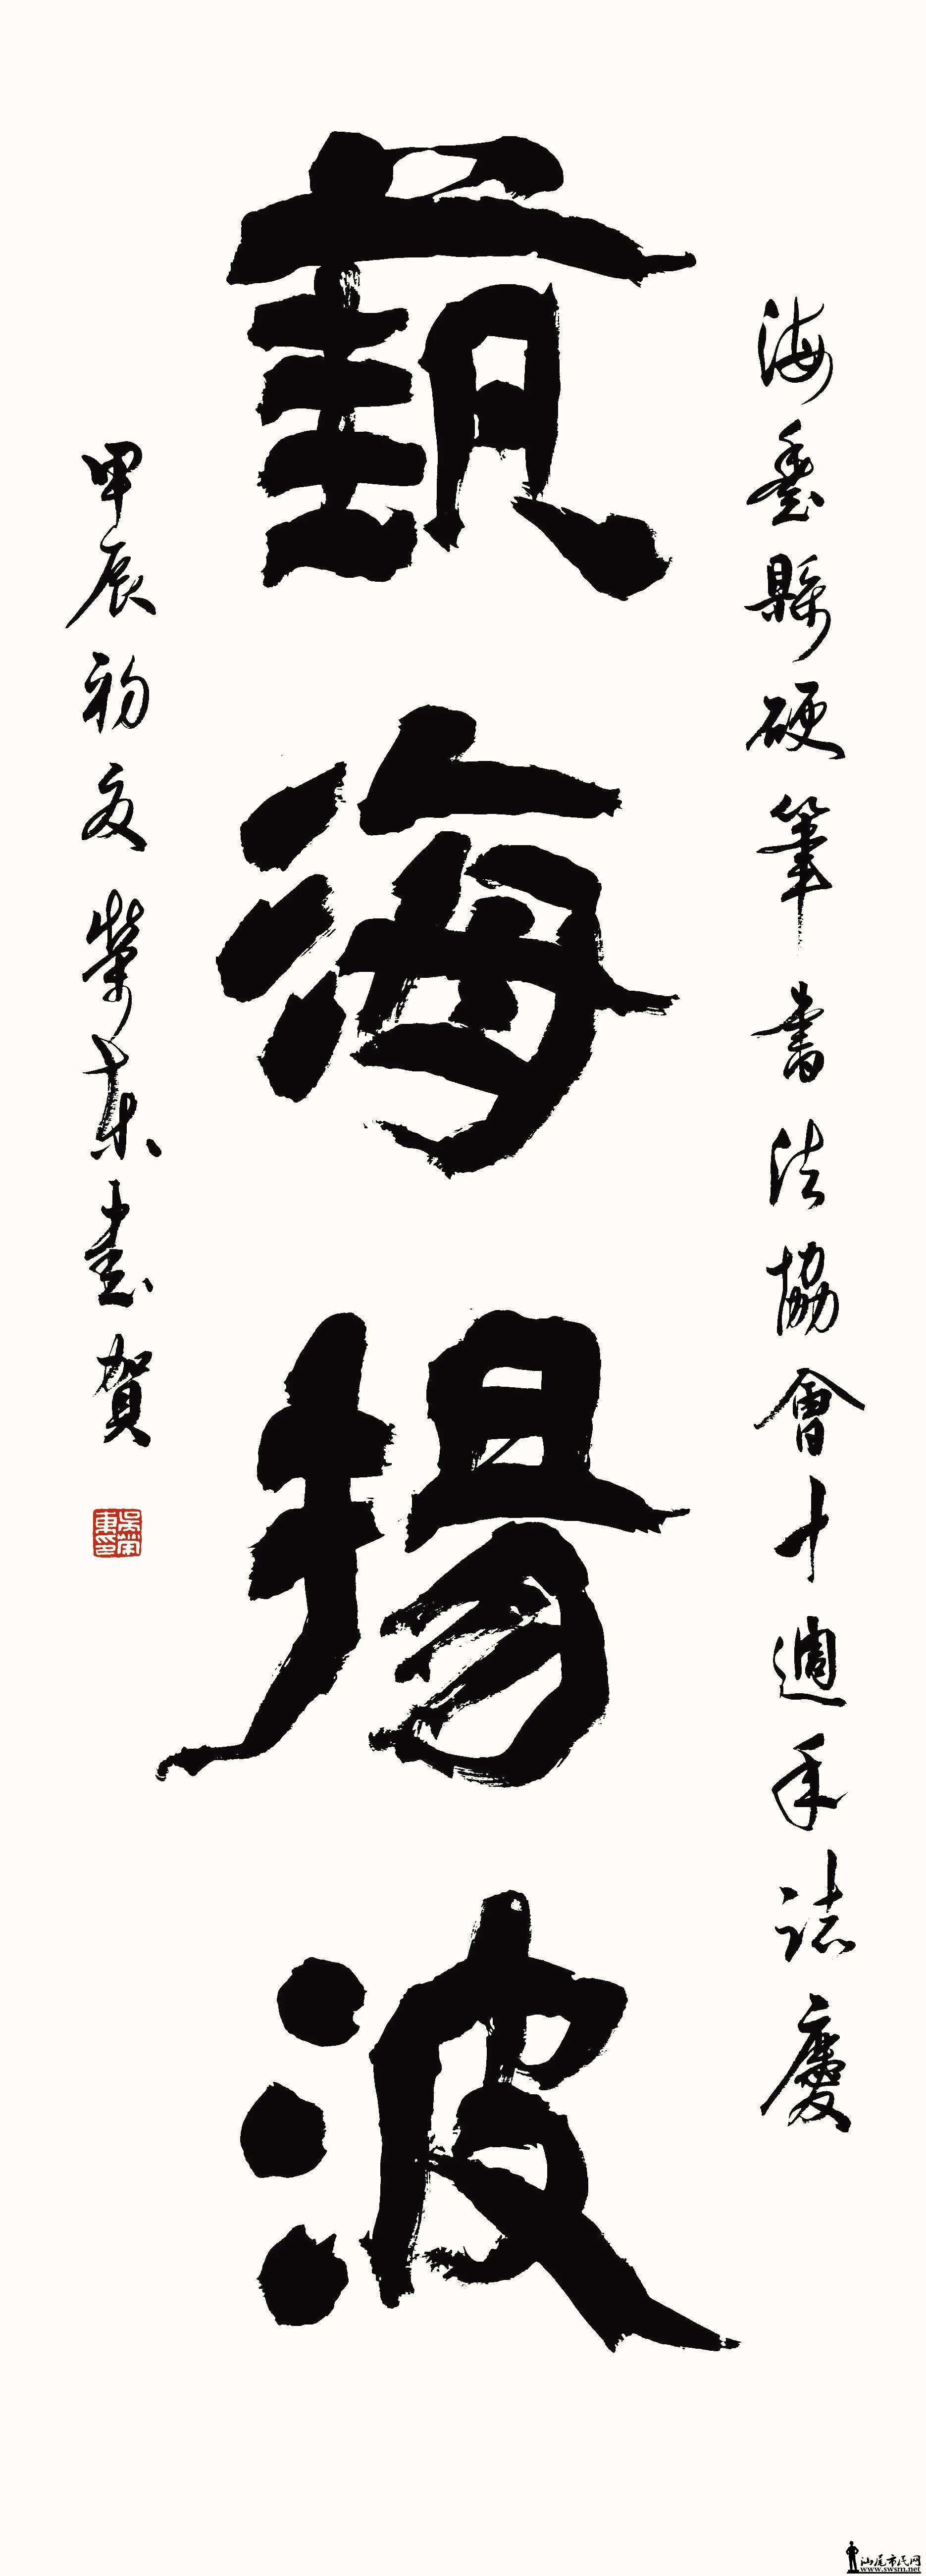 海豐縣硬筆書法協會十週年誌慶
蓺海揚波
甲辰初夏榮東書賀
吳榮東印
汕尾市民网
www.swsm.net